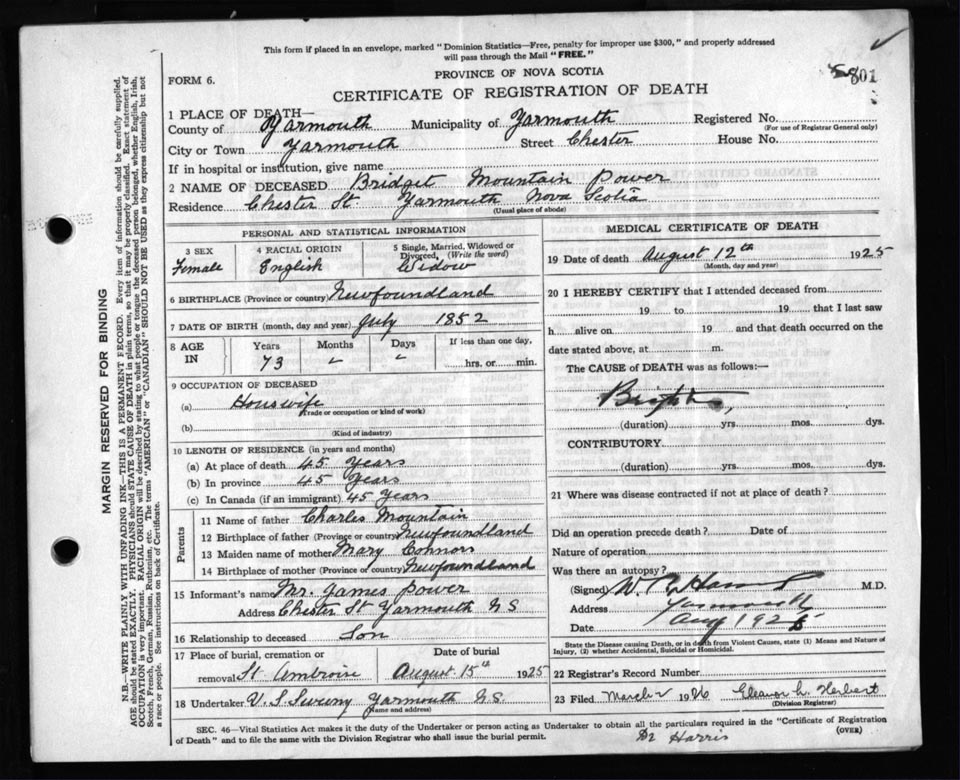 This form if placed in an envelope, marked "Dominion Statistics—Free, penalty for improper use $300," and properly addressed
will pass through the Mail "FREE."
801
FORM 6.
PROVINCE OF NOVA SCOTIA
CERTIFICATE OF REGISTRATION OF DEATH
1 PLACE OF DEATH—
County of Yarmouth Municipality of Yarmouth Registered No.
(For use of Registrar General only)
City or Town Yarmouth Street Chester House No.
If in hospital or institution, give name
2 NAME OF DECEASED Bridget Mountain Power
Residence Chester St. Yarmouth Nova Scotia
(Usual place of abode)
PERSONAL AND STATISTICAL INFORMATION
3 SEX 4 RACIAL ORIGIN 5 Single, Married, Widowed or
Divorced, (Write the word)
Female English Widow
6 BIRTHPLACE (Province or country) Newfoundland
7 DATE OF BIRTH (month, day and year) July 1852
8 AGE IN Years Months Days If less than one day,
73 " " hrs. or min.
9 OCCUPATION OF DECEASED
(a) Houswife
(Trade or occupation or kind of work)
(b)
(Kind of industry)
10 LENGTH OF RESIDENCE (in years and months)
(a) At place of death 45 Years
(b) In province 45 Years
(c) In Canada (if an immigrant) 45 Years
Parents
11 Name of father Charles Mountain
12 Birthplace of father (Province or country) Newfoundland
13 Maiden name of mother Mary Connors
14 Birthplace of mother (Province or country) Newfoundland
15 Informant's name Mr. James Power
Address Chester St Yarmouth N S
16 Relationship to deceased Son
17 Place of burial, cremation or Date of burial
removal St Ambroise August 15th 1925
18 Undertaker V. S. Sweeny Yarmouth N S.
(Name and address)
MEDICAL CERTIFICATE OF DEATH
19 Date of death August 12th 1925
(Month, day and year)
20 I HEREBY CERTIFY that I attended deceased from
19 to 19 that I last saw
h alive on 19 and that death occurred on the
date stated above, at m.
The CAUSE of DEATH was as follows:—
Brights,
(duration) yrs. mos. dys.
CONTRIBUTORY
(duration) yrs. mos. dys.
21 Where was disease contracted if not at place of death?
Did an operation precede death? Date of
Nature of operation
Was there an autopsy?
(Signed) M.D.
Address Yarmouth
Date Aug 1925
State the Disease causing Death, or in death from Violent Causes, state (1) Means and Nature of
Injury, (2) whether Accidental, Suicidal or Homicidal.
22 Registrar's Record Number
23 Filed March 2 1926 Eleanor L. Herbert
(Division Registrar)
SEC. 46—Vital Statistics Act makes it the duty of the Undertaker or person acting as Undertaker to obtain all the particulars required in the "Certificate of Registration
of Death" and to file the same with the Division Registrar who shall issue the burial permit.
(OVER)
Dr Harris
MARGIN RESERVED FOR BINDING
N.B.—WRITE PLAINLY WITH UNFADING INK—THIS IS A PERMANENT RECORD. Every item of information should be carefully supplied.
AGE should be stated EXACTLY. PHYSICIANS should STATE CAUSE OF DEATH in plain terms, so that it may be properly classified. Exact statement of
OCCUPATION is very important. RACIAL ORIGIN will be described by stating to what people or tongue the deceased person belonged, whether English, Irish,
Scotch, French, German, Russian, Ruthenian, etc. The terms "AMERICAN" or "CANADIAN" SHOULD NOT BE USED as they express citizenship but not
a race or people. See instructions on back of Certificate.